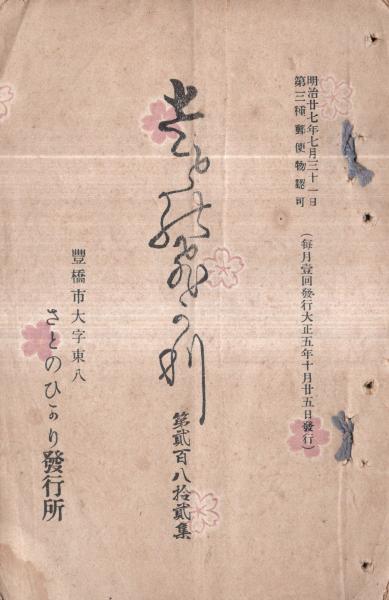 明治廿七年七月三十一日
第三種郵便物認可
(每月壹回發行大正五年十月廿五日發行)
第貳百八拾貳集
豐橋市大字東八
さとのひかり發行所